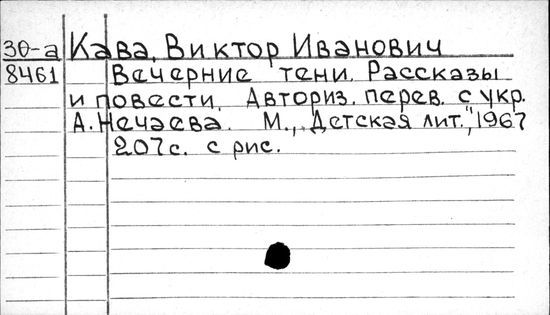 30-а Кава, Виктор Иванович
8461 Вечерние тени. Рассказы
и повести. Авториз. перев. с укр.
А. Нечаева. М., „Детская лит.", 1967
207 с. с рис.